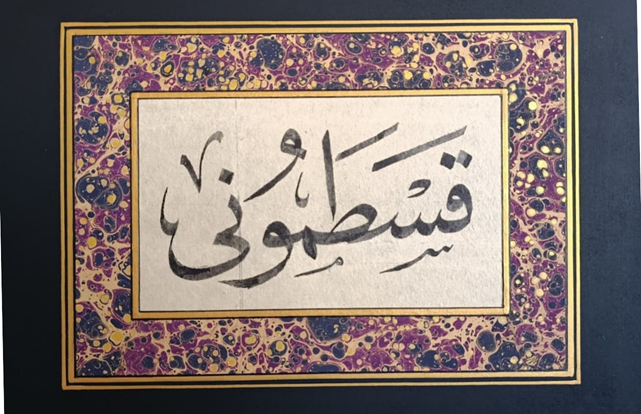 قسطمونى